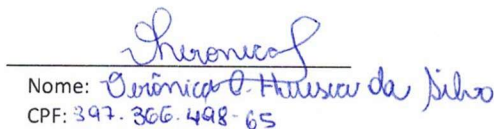 Veronica
Nome: Verônica da Silva
CPF: 397.366.498-65